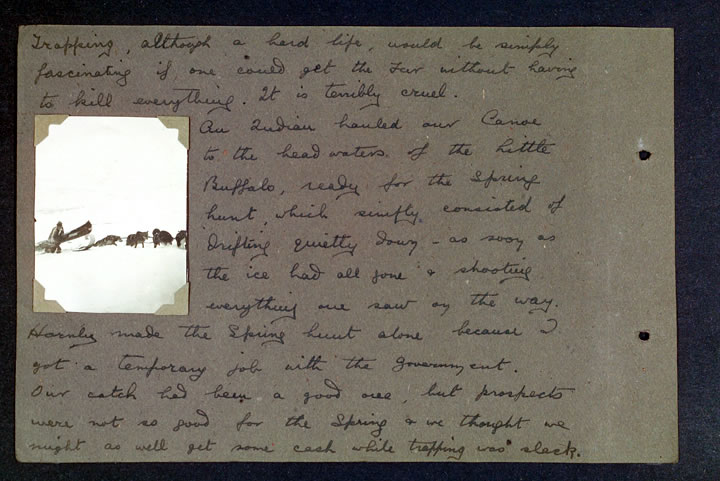 Trapping, although a hard life, would be simply
fascinating if one could get the Fur without having
to kill everything. It is terribly cruel.
An Indian hauled our Canoe
to the head waters of the Little
Buffalo, ready for the Spring
hunt, which simply consisted of
drifting quietly down - as soon as
the ice had all gone & shooting
everything one saw on the way.
Hornby made the Spring hunt alone because I
got a temporary job with the Government.
Our catch had been a good one, but prospects
were not so good for the Spring & we thought we
might as well get some cash while trapping was slack.